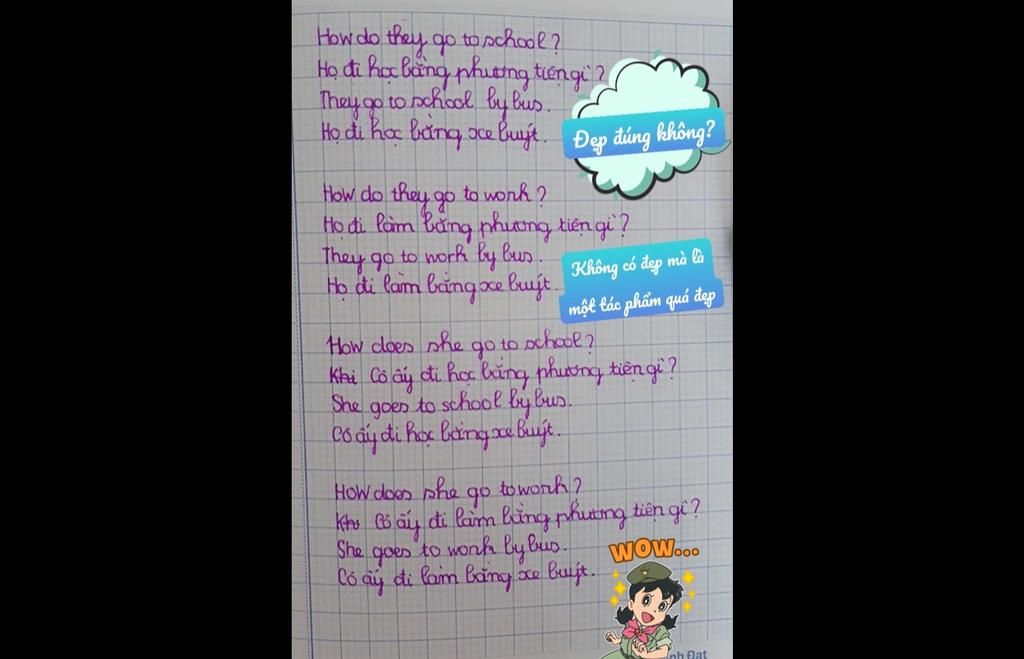 How do they go to school?
Họ đi học bằng phương tiện gì?
They go to school by bus.
Họ đi học bằng xe buýt.
Đẹp đúng không?
How do they go to work?
Họ đi làm bằng phương tiện gì?
They go to work by bus.
Họ đi làm bằng xe buýt.
Không có đẹp mà là
một tác phẩm quá đẹp
How does she go to school?
Khi Cô ấy đi học bằng phương tiện gì?
She goes to school by bus.
Cô ấy đi học bằng xe buýt.
How does she go to work?
Khi Cô ấy đi làm bằng phương tiện gì?
She goes to work by bus.
Cô ấy đi làm bằng xe buýt.
WOW...
nh Đạt